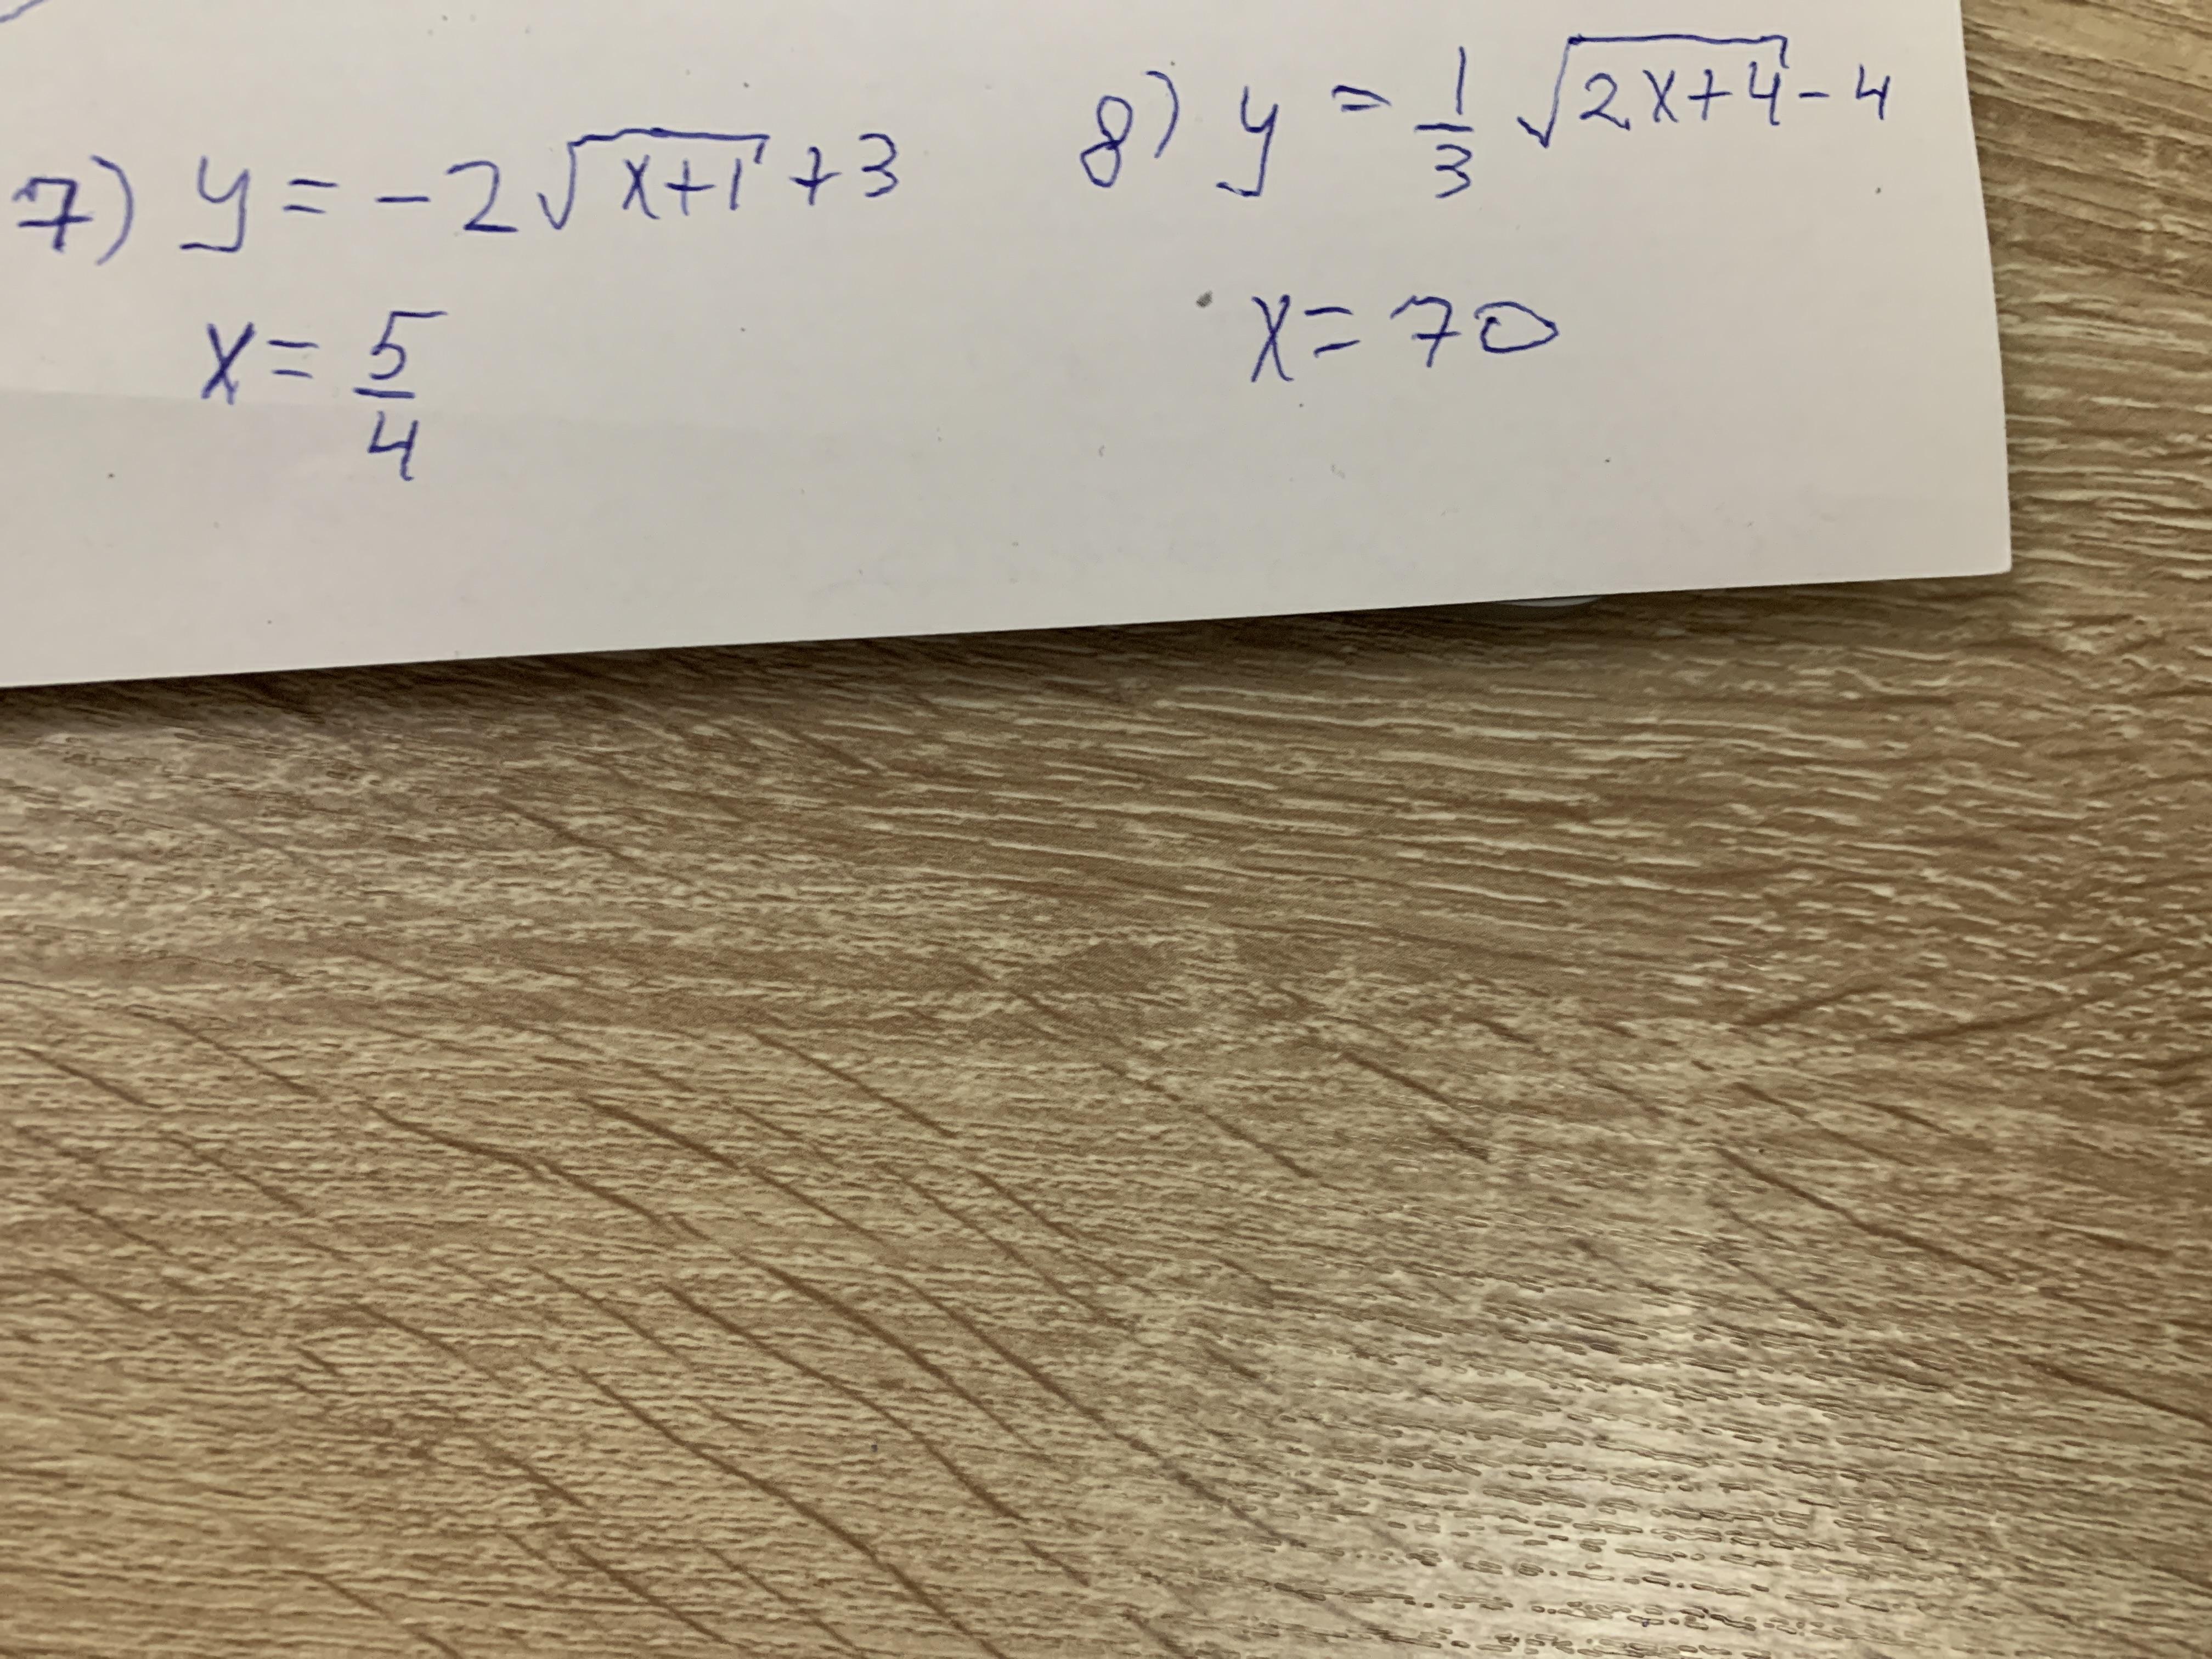 7) y = -2√(x+1) + 3
x = 5/4
8) y = 1/3 √(2x+4) - 4
x = 70